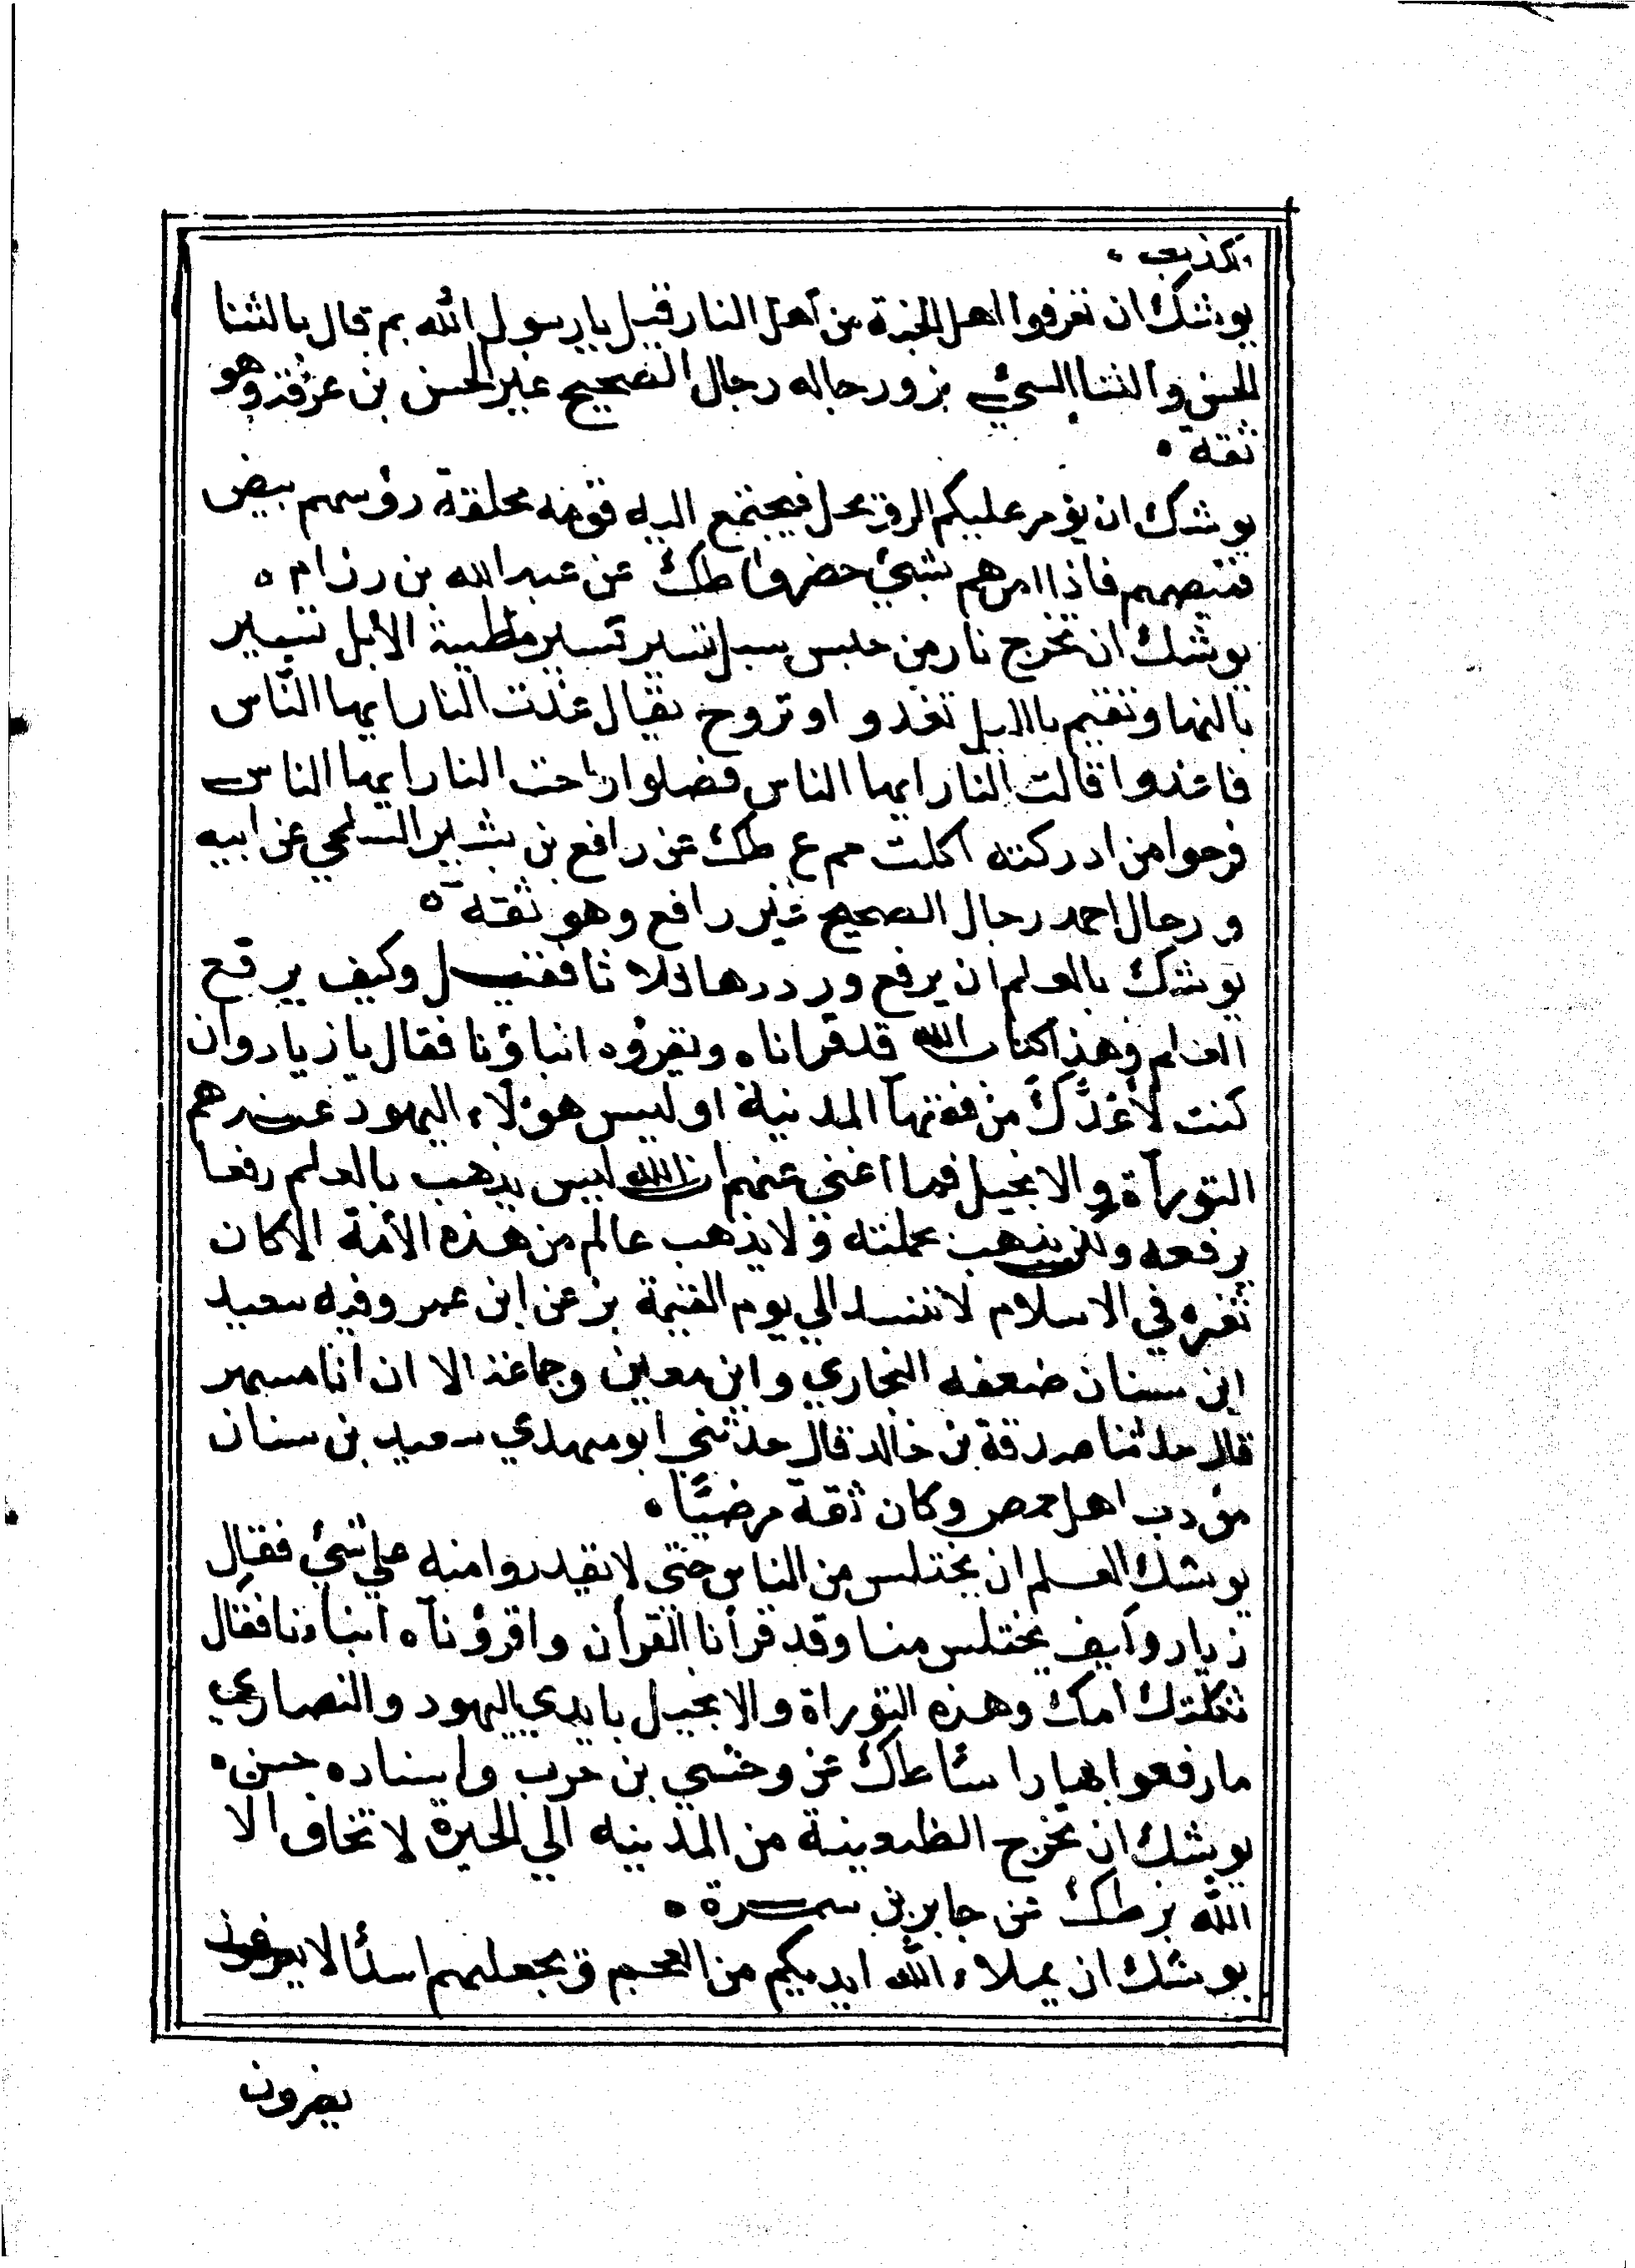 تكذيب ٠
يوشك ان تعرفوا اهل الجنة من اهل النار قيل يا رسول الله بم قال بالثنا
الحسن والثنا السيئ بز ورجاله رجال الصحيح غير الحسن بن عرفة وهو
ثقة ٠
يوشك ان يؤمر عليكم فيجتمع اليه قوم محلقة رؤسهم بيض
قمصهم فاذا امرهم بشيئ حضروا طك عن عبد الله بن رزام ٠
يوشك ان تخرج نار من حبس سيل تسير تسير مطية الابل تسير
بالنها وتقيم بالليل تغدو او تروح يقال غدت النار ايها الناس
فاغدوا قالت النار ايها الناس فضلوا راحت النار ايها الناس
فرحوا من ادركته اكلت حم ع طك عن رافع بن بشير السلمي عن ابيه
ورجال احمد رجال الصحيح غير رافع وهو ثقة ٥
يوشك بالعلم ان يرفع ورددها ثلاثا فقيل وكيف يرفع
العلم وهذا كتاب الله قد قراناه ونقرؤه ابناؤنا فقال يا زياد وان
كنت لاعدك من فقهآ المدينة اوليس هؤلآء اليهود عندهم
التورآة والانجيل فما اغنى عنهم ان الله ليس يذهب بالعلم رفعا
يرفعه ولكن يذهب بحملته ولا يذهب عالم من هذه الأمة الاكان
ثغره في الاسلام لا تنسد الي يوم القيمة بز عن ابن عمر وفيه سعيد
ابن سنان ضعفه البخاري وابن معين وجماعة الا ان ابا مسهر
قال حدثنا صدقة بن خالد قال حدثني ابو مهدي سعيد بن سنان
مؤدب اهل حمص وكان ثقة مرضيًا ٠
يوشك العلم ان يختلس من الناس حتى لا تقدروا منه على شيئ فقال
زياد وكيف يختلس منا وقد قرأنا القرأن واقرؤنآه ابناءنا فقال
ثكلتك امك وهذه التوراة والانجيل بايدي اليهود والنصاري
ما رفعوا بها راسًا طك عن وحشي بن حرب واسناده حسن ٠
يوشك ان تخرج الظعينة من المدينه الي الحيرة لا تخاف الا
الله بز طك عن جابر بن سمرة ٠
يوشك ان يملاء الله ايديكم من العجم ويجعلهم اسدًا لا يفرون
يفرون